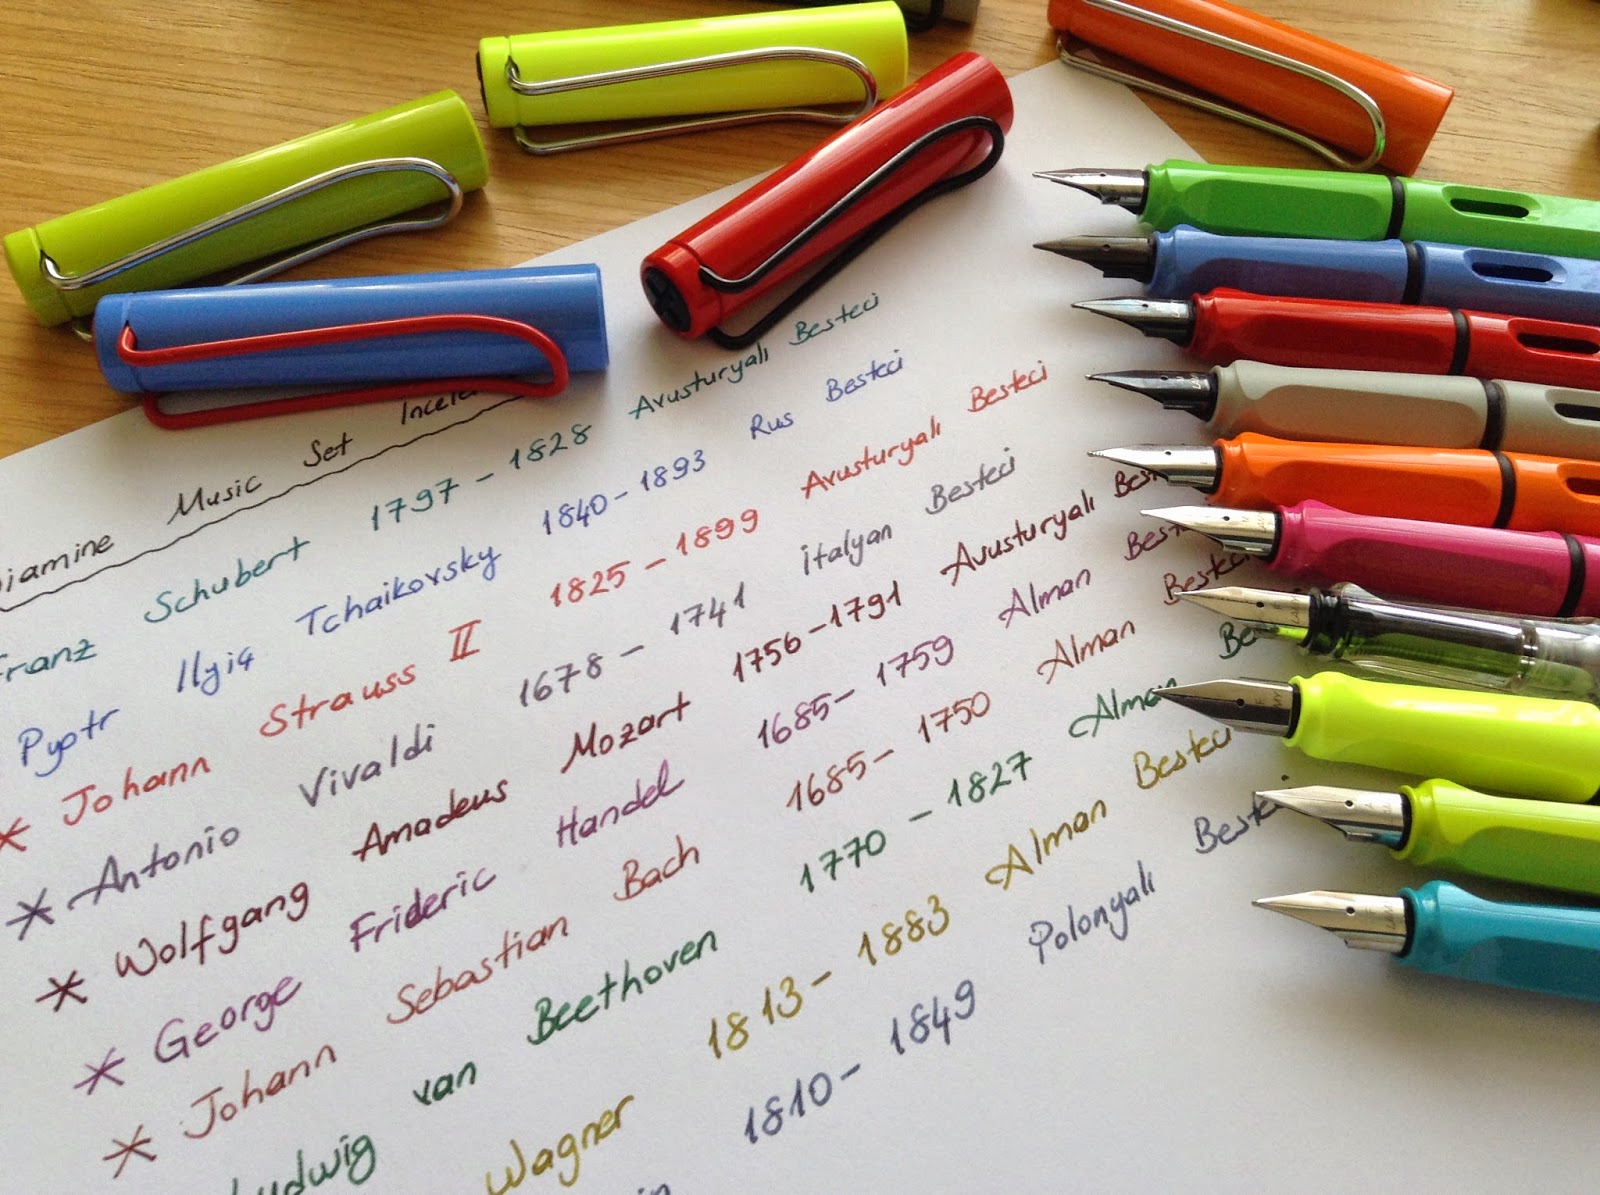 Music Set
Franz Schubert 1797 - 1828 Avusturyalı Besteci
Pyotr Ilyiç Tchaikovsky 1840 - 1893 Rus Besteci
* Johann Strauss II 1825 - 1899 Avusturyalı Besteci
* Antonio Vivaldi 1678 - 1741 İtalyan Besteci
* Wolfgang Amadeus Mozart 1756 - 1791 Avusturyalı
* George Frideric Handel 1685 - 1759 Alman
* Johann Sebastian Bach 1685 - 1750 Alman Besteci
Ludwig van Beethoven 1770 - 1827 Alman
Wagner 1813 - 1883 Alman Besteci
1810 - 1849 Polonyalı Besteci